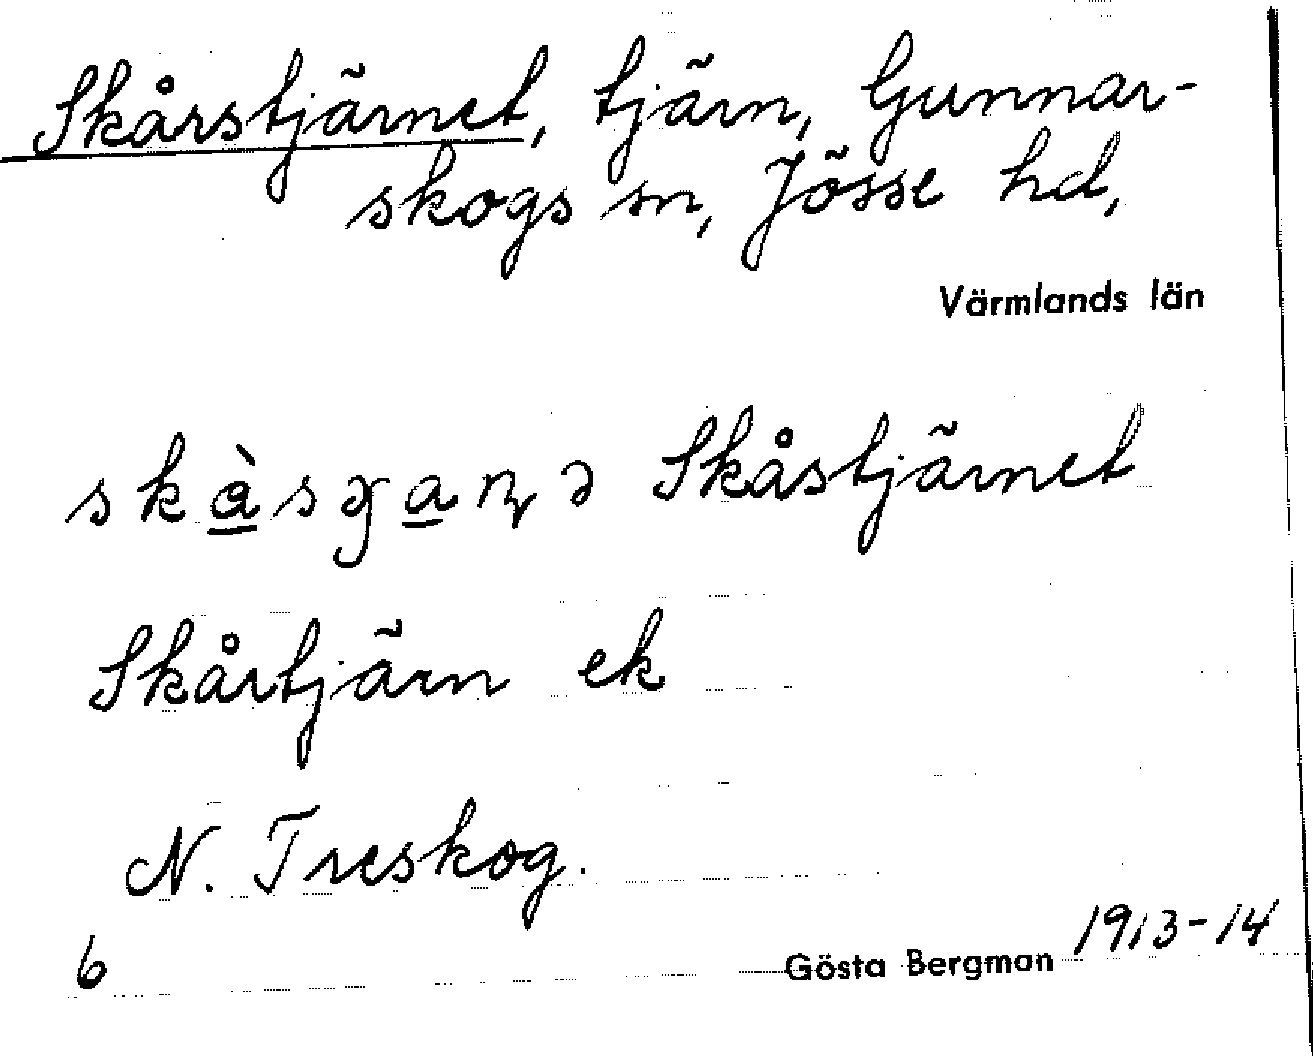 Skårstjärnet, tjärn, Gunnar-
skogs sn, Jösse hd,
Värmlands län
skàsɟaɳə Skåstjärnet
Skårtjärn ek
N. Treskog.
6 Gösta Bergman 1913-14